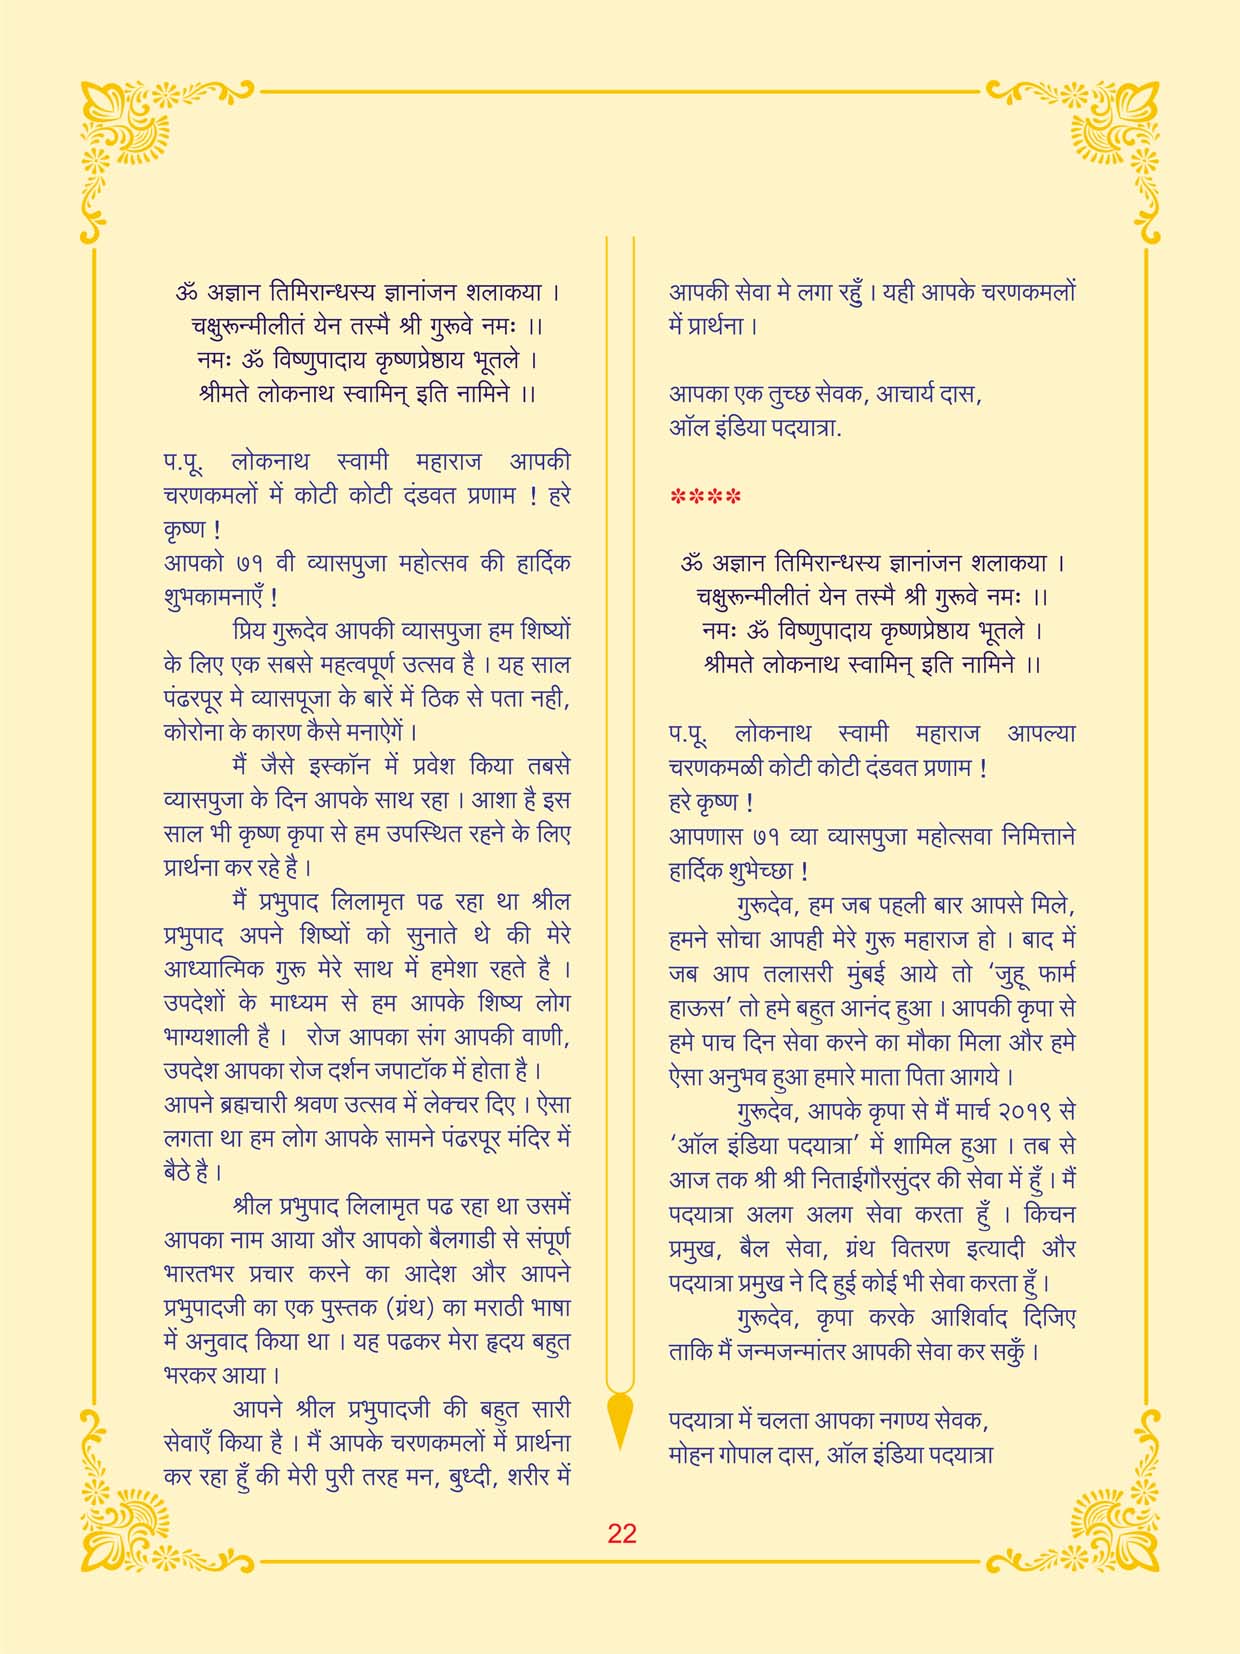 ॐ अज्ञान तिमिरान्धस्य ज्ञानांजन शलाकया ।
चक्षुरून्मीलीतं येन तस्मै श्री गुरूवे नमः ।।
नमः ॐ विष्णुपादाय कृष्णप्रेष्ठाय भूतले ।
श्रीमते लोकनाथ स्वामिन् इति नामिने ।।
प.पू. लोकनाथ स्वामी महाराज आपकी
चरणकमलों में कोटी कोटी दंडवत प्रणाम ! हरे
कृष्ण !
आपको ७१ वी व्यासपुजा महोत्सव की हार्दिक
शुभकामनाएँ !
प्रिय गुरूदेव आपकी व्यासपुजा हम शिष्यों
के लिए एक सबसे महत्वपूर्ण उत्सव है । यह साल
पंढरपूर मे व्यासपूजा के बारें में ठिक से पता नही,
कोरोना के कारण कैसे मनाऐगें ।
मैं जैसे इस्कॉन में प्रवेश किया तबसे
व्यासपुजा के दिन आपके साथ रहा । आशा है इस
साल भी कृष्ण कृपा से हम उपस्थित रहने के लिए
प्रार्थना कर रहे है ।
मैं प्रभुपाद लिलामृत पढ रहा था श्रील
प्रभुपाद अपने शिष्यों को सुनाते थे की मेरे
आध्यात्मिक गुरू मेरे साथ में हमेशा रहते है ।
उपदेशों के माध्यम से हम आपके शिष्य लोग
भाग्यशाली है । रोज आपका संग आपकी वाणी,
उपदेश आपका रोज दर्शन जपाटॉक में होता है ।
आपने ब्रह्मचारी श्रवण उत्सव में लेक्चर दिए । ऐसा
लगता था हम लोग आपके सामने पंढरपूर मंदिर में
बैठे है ।
श्रील प्रभुपाद लिलामृत पढ रहा था उसमें
आपका नाम आया और आपको बैलगाडी से संपूर्ण
भारतभर प्रचार करने का आदेश और आपने
प्रभुपादजी का एक पुस्तक (ग्रंथ) का मराठी भाषा
में अनुवाद किया था । यह पढकर मेरा हृदय बहुत
भरकर आया ।
आपने श्रील प्रभुपादजी की बहुत सारी
सेवाएँ किया है । मैं आपके चरणकमलों में प्रार्थना
कर रहा हुँ की मेरी पुरी तरह मन, बुध्दी, शरीर में
आपकी सेवा मे लगा रहुँ । यही आपके चरणकमलों
में प्रार्थना ।
आपका एक तुच्छ सेवक, आचार्य दास,
ऑल इंडिया पदयात्रा.
****
ॐ अज्ञान तिमिरान्धस्य ज्ञानांजन शलाकया ।
चक्षुरून्मीलीतं येन तस्मै श्री गुरूवे नमः ।।
नमः ॐ विष्णुपादाय कृष्णप्रेष्ठाय भूतले ।
श्रीमते लोकनाथ स्वामिन् इति नामिने ।।
प.पू. लोकनाथ स्वामी महाराज आपल्या
चरणकमळी कोटी कोटी दंडवत प्रणाम !
हरे कृष्ण !
आपणास ७१ व्या व्यासपुजा महोत्सवा निमित्ताने
हार्दिक शुभेच्छा !
गुरूदेव, हम जब पहली बार आपसे मिले,
हमने सोचा आपही मेरे गुरू महाराज हो । बाद में
जब आप तलासरी मुंबई आये तो ‘जुहू फार्म
हाऊस’ तो हमे बहुत आनंद हुआ । आपकी कृपा से
हमे पाच दिन सेवा करने का मौका मिला और हमे
ऐसा अनुभव हुआ हमारे माता पिता आगये ।
गुरूदेव, आपके कृपा से मैं मार्च २०१९ से
‘ऑल इंडिया पदयात्रा’ में शामिल हुआ । तब से
आज तक श्री श्री निताईगौरसुंदर की सेवा में हुँ । मैं
पदयात्रा अलग अलग सेवा करता हुँ । किचन
प्रमुख, बैल सेवा, ग्रंथ वितरण इत्यादी और
पदयात्रा प्रमुख ने दि हुई कोई भी सेवा करता हुँ ।
गुरूदेव, कृपा करके आशिर्वाद दिजिए
ताकि मैं जन्मजन्मांतर आपकी सेवा कर सकुँ ।
पदयात्रा में चलता आपका नगण्य सेवक,
मोहन गोपाल दास, ऑल इंडिया पदयात्रा
22